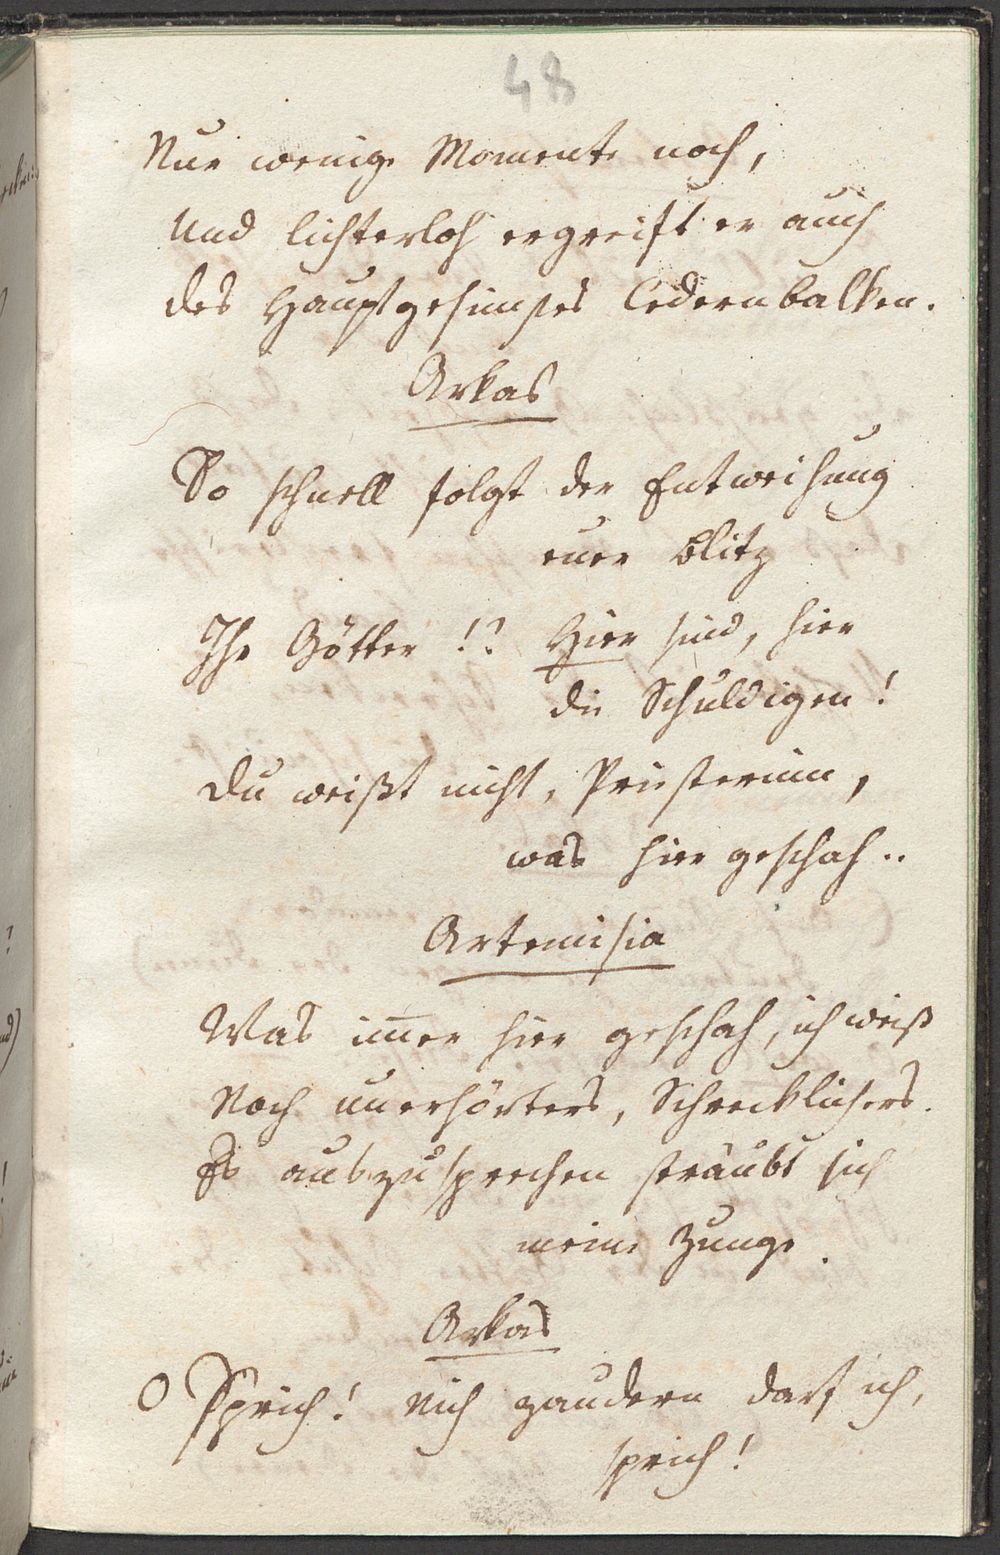 48
Nur wenige Momente noch,
Und lichterloh ergreift er auch
des Hauptgesimses Cedernbalken.
Arkas
So schnell folgt der Entweihung
euer Blitz
Ihr Götter!? Hier sind, hier
die Schuldigen!
Du weißt nicht, Priesterinn,
was hier geschah..
Artemisia
Was im̅er hier geschah, ich weiß
Noch unerhörters, Schrecklichers.
Es auszusprechen sträubt sich
meine Zunge.
Arkas
O Sprich! nich zaudern darf ich,
sprich!